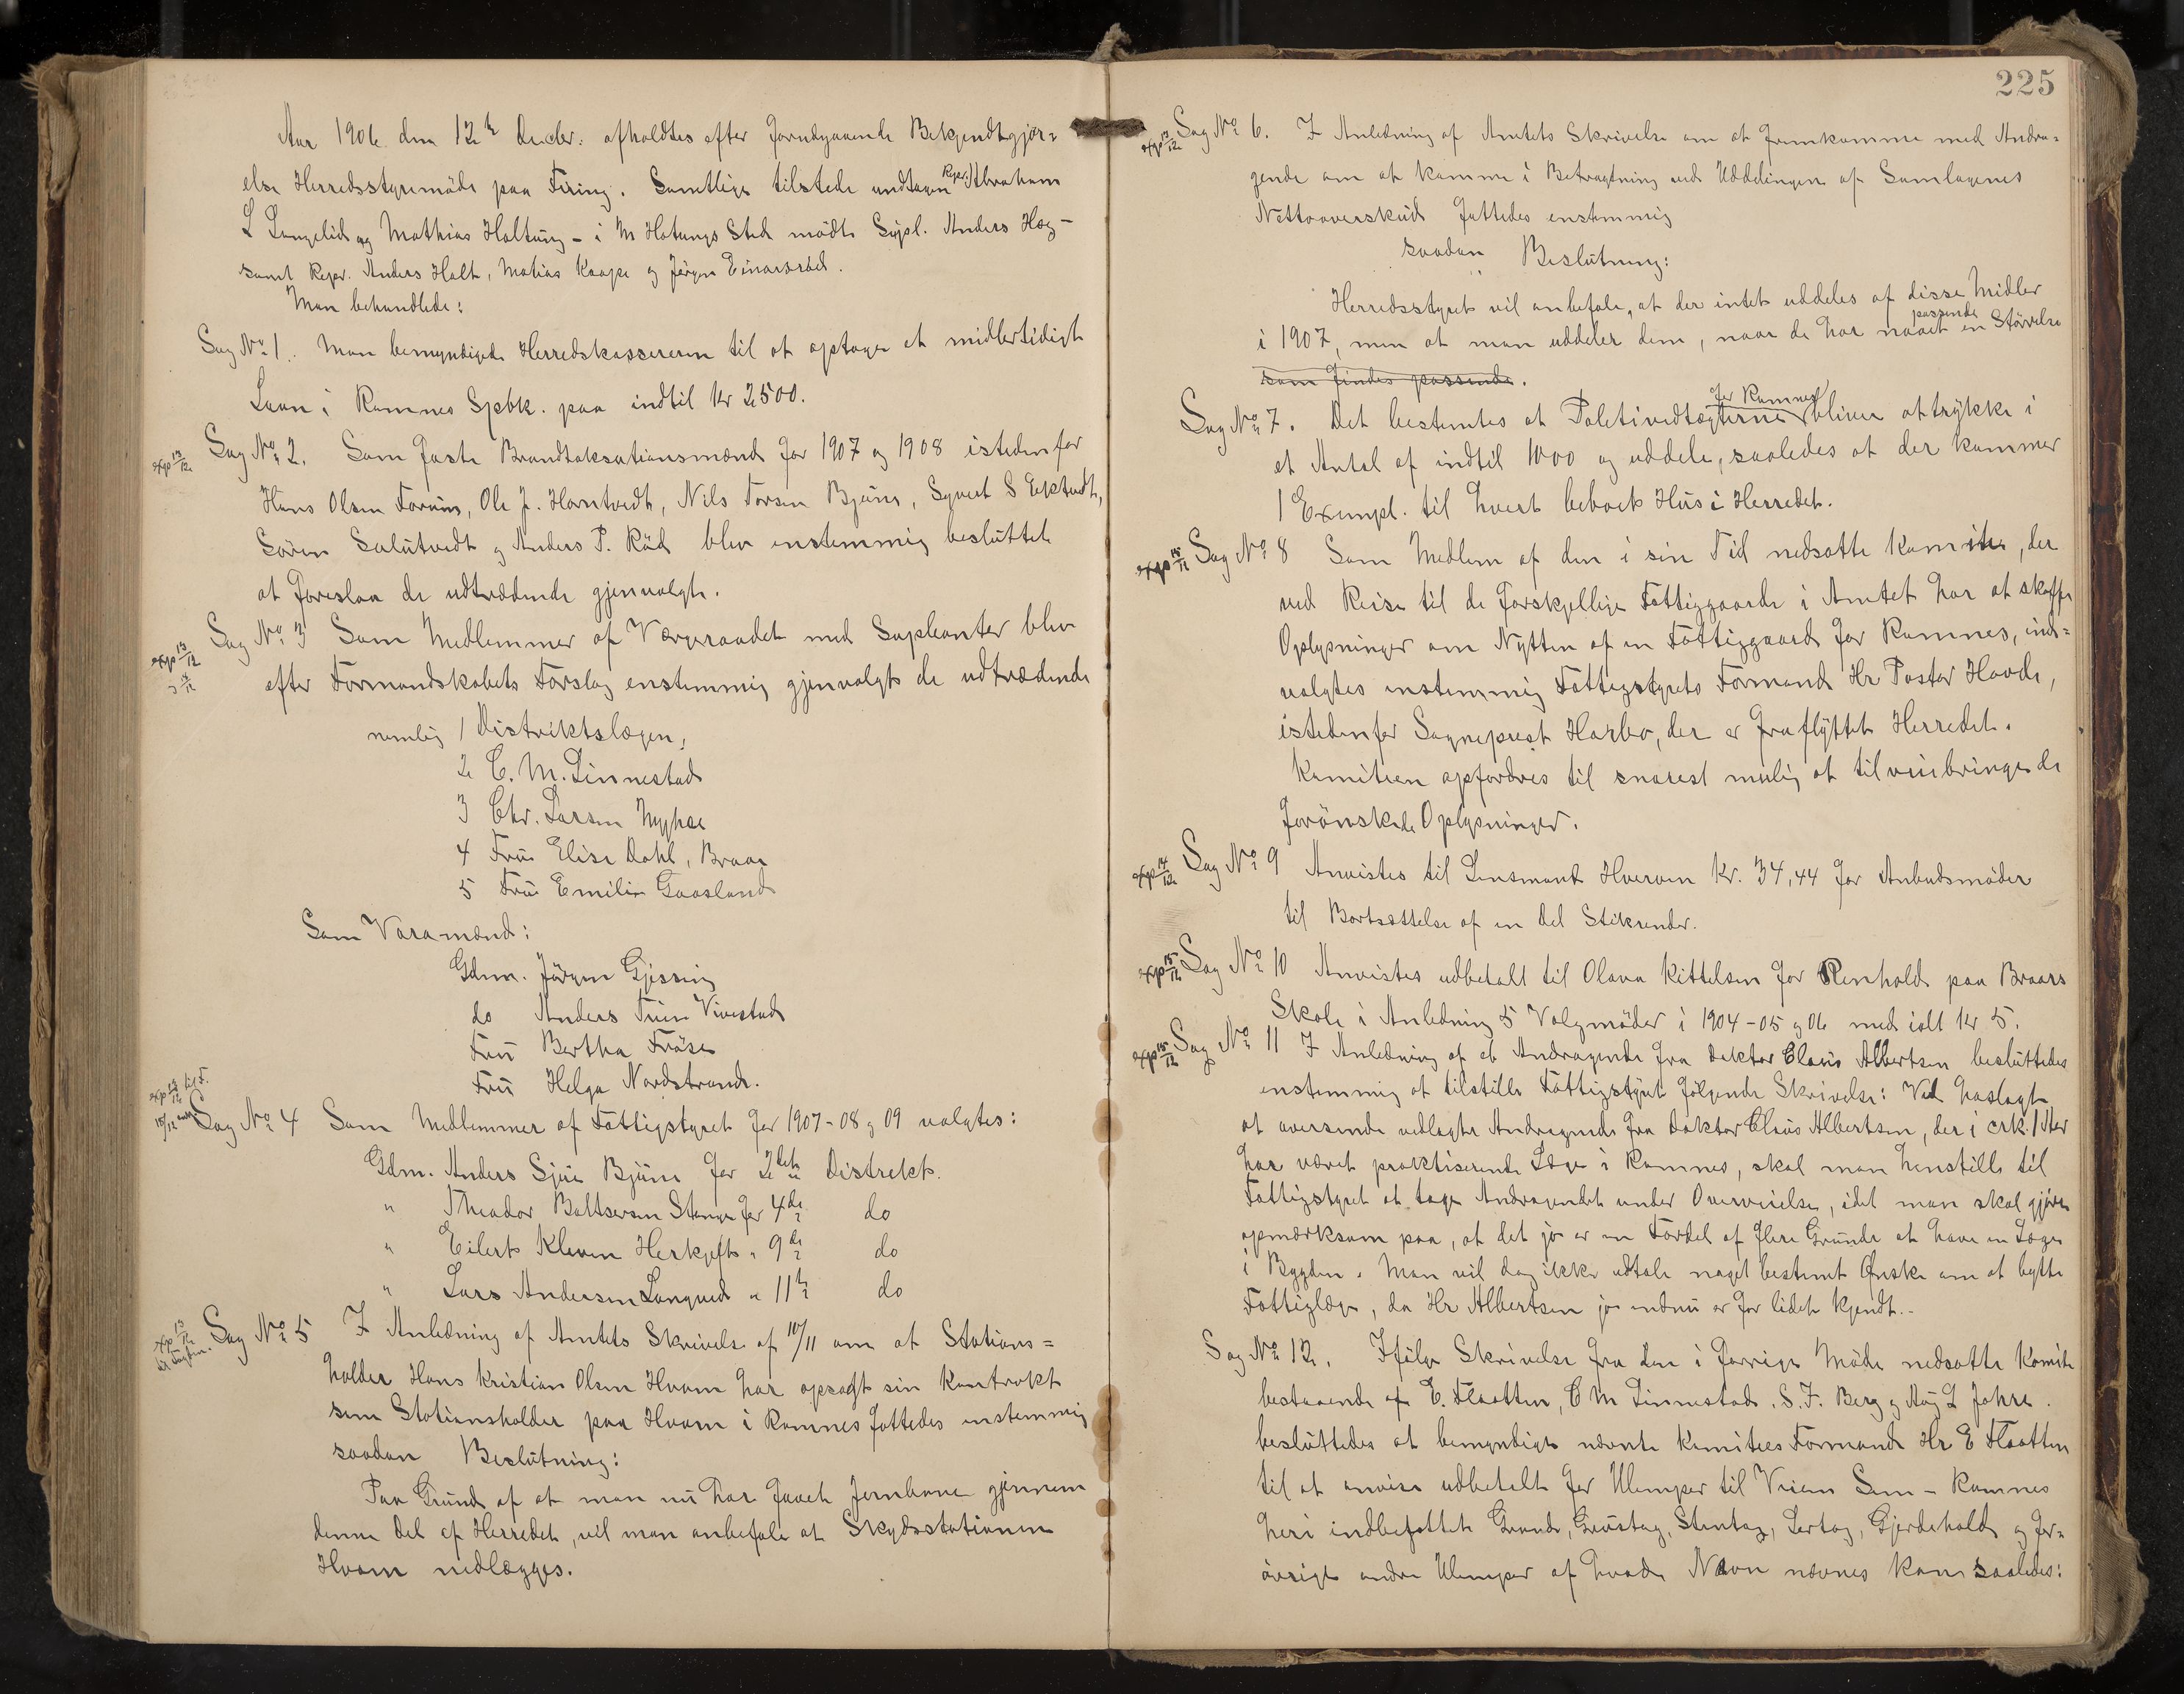 Aar 1906 den 12te Decbr. afholdtes efter forudgaaende Bekjendtgjør=
else Herredsstyremöde paa Firing. Samtlige tilstede undtagen Repr. Abraham
L Langelid og Mathias Holtung - i M Holtungs Sted mödte Supl. Anders Hæg-
samt Repr. Anders Holt, Matias Kaape og Jörgen Einarsröd.
Man behandlede:
Sag No 1. Man bemyndigede Herredskassereren til at optage et midlertidigt
Laan i Ramnes Spbk. paa indtil Kr 2500.
exp 13/12 Sag No 2. Som faste Brandtaksationsmænd for 1907 og 1908 istedenfor
Hans Olsen Foruin, Ole J. Horntvedt, Nils Torsen Bjune, Syvert S Ecktvedt,
Sören Solutvedt og Anders P. Röd blev enstemmig besluttet
at foreslaa de udtrædende gjenvalgte.
exp 13/12 Sag No 3 Som Medlemmer af Værgeraadet med Supleanter blev
efter Formandskabets Forslag enstemmig gjenvalgt de udtrædende
nemlig 1 Distriktslægen,
2 C. M. Linnestad
3 Chr. Larsen Myhre
4 Fru Elise Dahl, Braar
5 Fru Emilie Gaasland
Som Varamænd:
Gdm. Jörgen Gjessing
do Anders Firing Vivestad
Fru Bertha Fröse
Fru Helga Nordstrand.
exp 14/12 til F.
15/12 Sag No 4 Som Medlemmer af Fattigstyret for 1907-08 og 09 valgtes:
Gdm. Anders Sjue Bjune for 2det Distrekt.
" Theodor Baltsersen Stange for 4de do
" Eilert Kleven Herkjeft " 9de do
" Lars Andersen Langved " 11te do
exp 13/12 Sag No 5 I Anledning af Amtets Skrivelse af 10/11 om at Stations=
holder Hans Kristian Olsen Hvam har opsagt sin Kontrakt
som Stationsholder paa Hvam i Ramnes fattedes enstemmig
saadan Beslutning:
Paa Grund af at man nu har faaet Jernbane gjennem
denne Del af Herredet, vil man anbefale at Skydsstationen
Hvam nedlægges.
225
exp 13/12 Sag No 6. I Anledning af Amtets Skrivelse om at fremkomme med Andra=
gende om at komme i Betragtning ved Uddelingen af Samlagenes
Nettooverskud fattedes enstemmig
saadan Beslutning:
Herredsstyret vil anbefale, at der intet uddeles af disse Midler
i 1907, men at man uddeler dem, naar de har naaet en passende Störrelse
som findes passende.
Sag No 7. Det bestemtes at Politivedtægterne for Ramnes bliver at trykke i
et Antal af indtil 1000 og uddele, saaledes at der kommer
1 Exempl. til hvert beboet Hus i Herredet.
exp 15/12 Sag No 8 Som Medlem af den i sin Tid nedsatte Komite, der
ved Reise til de forskjellige Fattiggaarde i Amtet har at skaffe
Oplysninger om Nytten af en Fattiggaard for Ramnes, ind=
valgtes enstemmig Fattigstyrets Formand Hr Pastor Hovde,
istedenfor Sogneprest Harbo, der er fraflyttet Herredet.
Komiteen opfordres til snarest mulig at tilveiebringe de
forönskede Oplysninger.
exp 14/12 Sag No 9 Anvistes til Lensmand Hverven Kr. 34,44 for Anbudsmöder
til Bortsættelse af en Del Stikrender.
exp 15/12 Sag No 10 Anvistes udbetalt til Olava Kittelsen for Renhold paa Braars
Skole i Anledning 5 Valgmöder i 1904-05 og 06 med ialt Kr 5.
exp 15/12 Sag No 11 I Anledning af et Andragende fra Doktor Claus Albertsen besluttedes
enstemmig at tilstille Fattigstyret fölgende Skrivelse: Ved hoslagt
at oversende vedlagte Andragende fra Doktor Claus Albertsen, der i cirk. 1 Aar
har været praktiserende Læge i Ramnes, skal man henstille til
Fattigstyret at tage Andragendet under Overveielse, idet man skal gjöre
opmærksom paa, at det jo er en Fordel af flere Grunde at have en Læge
i Bygden. Man vil dog ikke udtale noget bestemt Ønske om at bytte
Fattiglæge, da Hr Albertsen jo endnu er for lidet kjendt.-
Sag No 12. Ifölge Skrivelse fra den i forrige Möde nedsatte Komite
bestaaende af E. Flaatten, C M Linnestad, S. F. Berg og Aug L Jahre.
besluttedes at bemyndige nævnte Komitees Formand Hr E Flaatten
til at anvise udbetalt for Ulemper til Veien Sem - Ramnes
heri indbefattet Grund, Grustag, Stentag, Lertag, Gjerdehold og for=
övrigt andre Ulemper af hvad Navn nævnes kan saaledes: